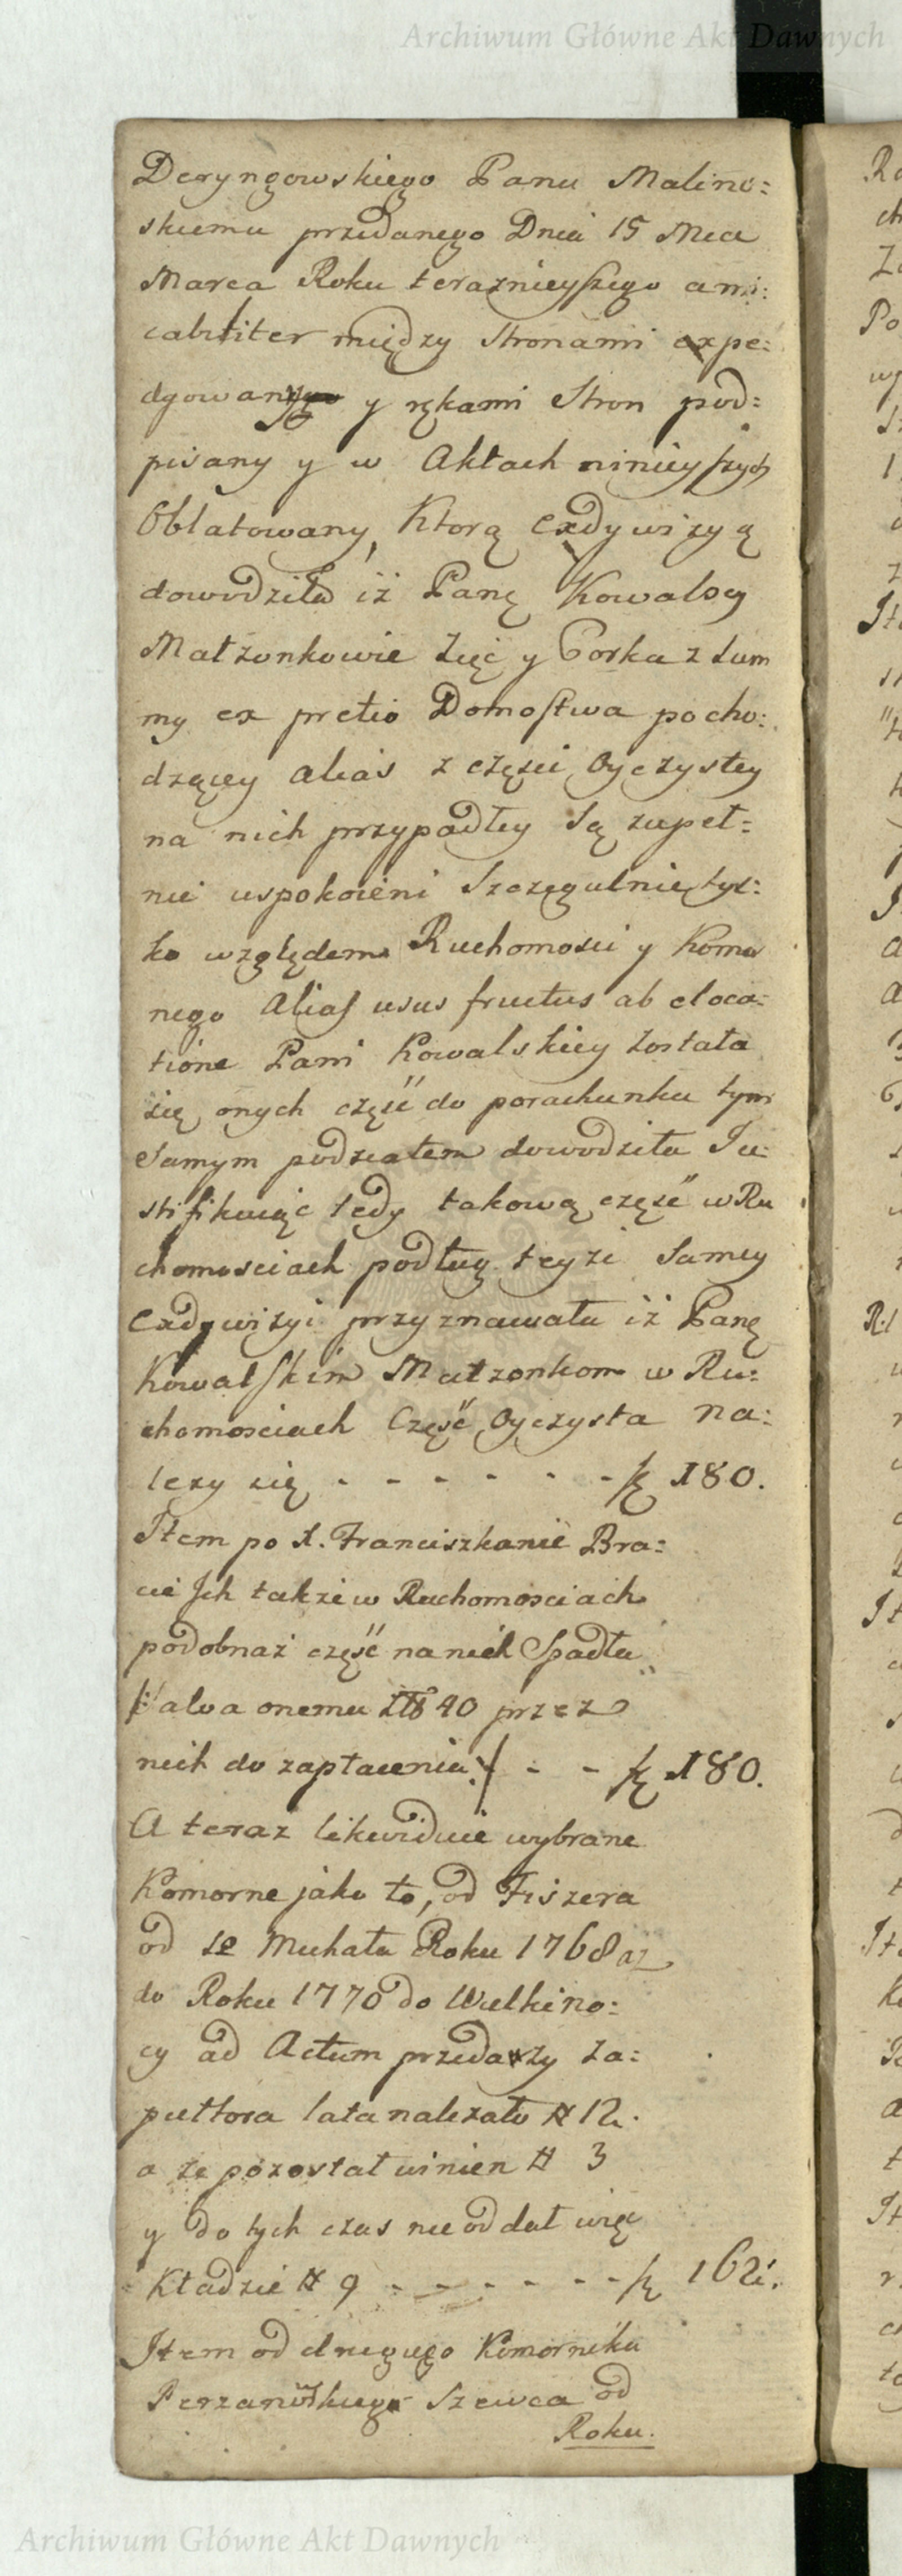 Archiwum Główne Akt Dawnych
Deryngowskiego Panu Malino:
skiemu przedanego Dnia 15 Mca
Marca Roku terazniejszego ami:
cabiliter między Stronami expe:
dyowany y rękami Stron pod:
pisany y w Aktach ninieyszych
Oblatowany, Ktorą Exdywizyą
dowodziła iż Panę Kowalscy
Małzonkowie Zięć y Corka z Sum
my ex pretio Domostwa pocho:
dzącey alias z częsci Oyczystey
na nich przypadłey Są zupeł:
nie uspokoieni Szczegulnie tyl:
ko względem Ruchomosci y Komor
nego Alias usus fructus ab eloca:
tione Pani Kowalskiey Została
się onych część do porachunku tym
Samym podziałem dowodziła Ju:
stifikuiąc tedy takową część w Ru
chomosciach podług teyże Samey
Exdywizyi przyznawała iż Panę
Kowalskim Małzonkom w Ru:
chomosciach Część Oyczysta na:
lezy się - - - - - - - 180.
Item po X. Franciszkanie Bra:
cie Ich także w Ruchomosciach
podobnaż część na nich Spadła
Salva onemu 40 przez
nich do zapłacenia - - 180.
A teraz likwiduie wybrane
Komorne jako to, od Fiszera
od So Michała Roku 1768 az
do Roku 1770 do Wielkino:
cy ad Actum przedarzy za:
pułtora lata nalezało # 12.
a że pozostał winien # 3
y do tych czas nie oddał więc
Kładzie # 9 - - - - - - 162.
Item od drugiego Komornika
Perzanowskiego Szewca od
Roku.
Archiwum Główne Akt Dawnych